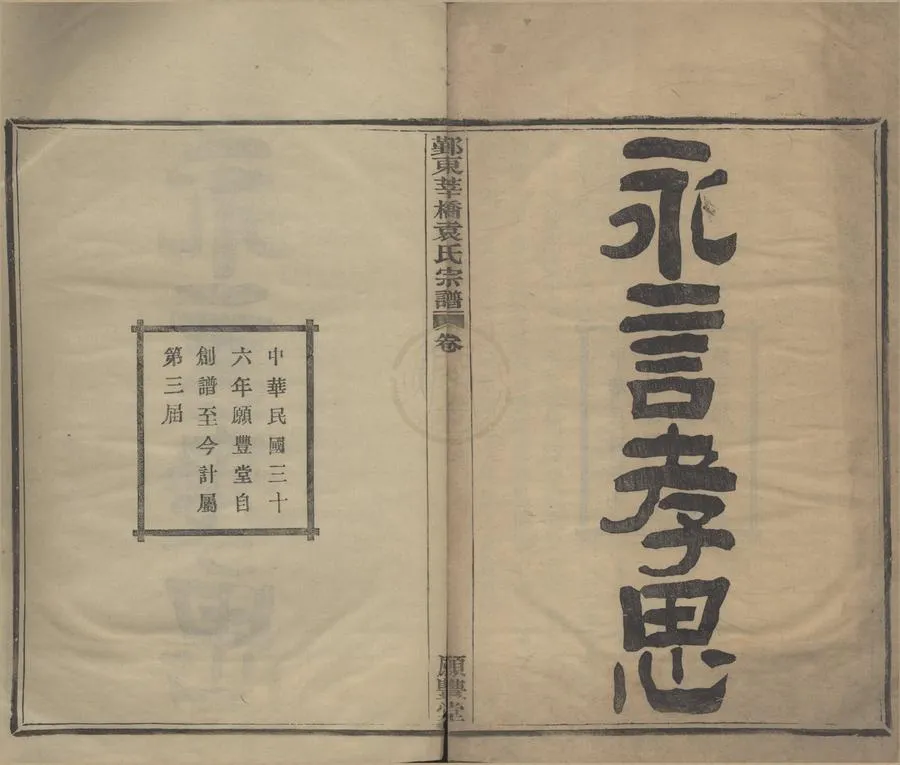 永言孝思
鄞東莘橋袁氏宗譜
卷
願豐堂
中華民國三十
六年願豐堂自
創譜至今計屬
第三屆